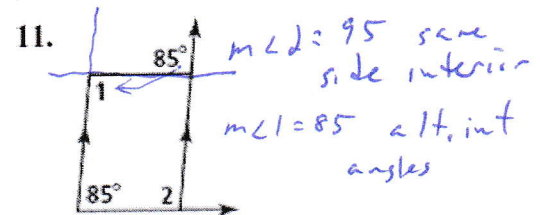 11.
85°
m∠2 = 95 same
side interior
1
m∠1 = 85 alt. int
angles
85°
2